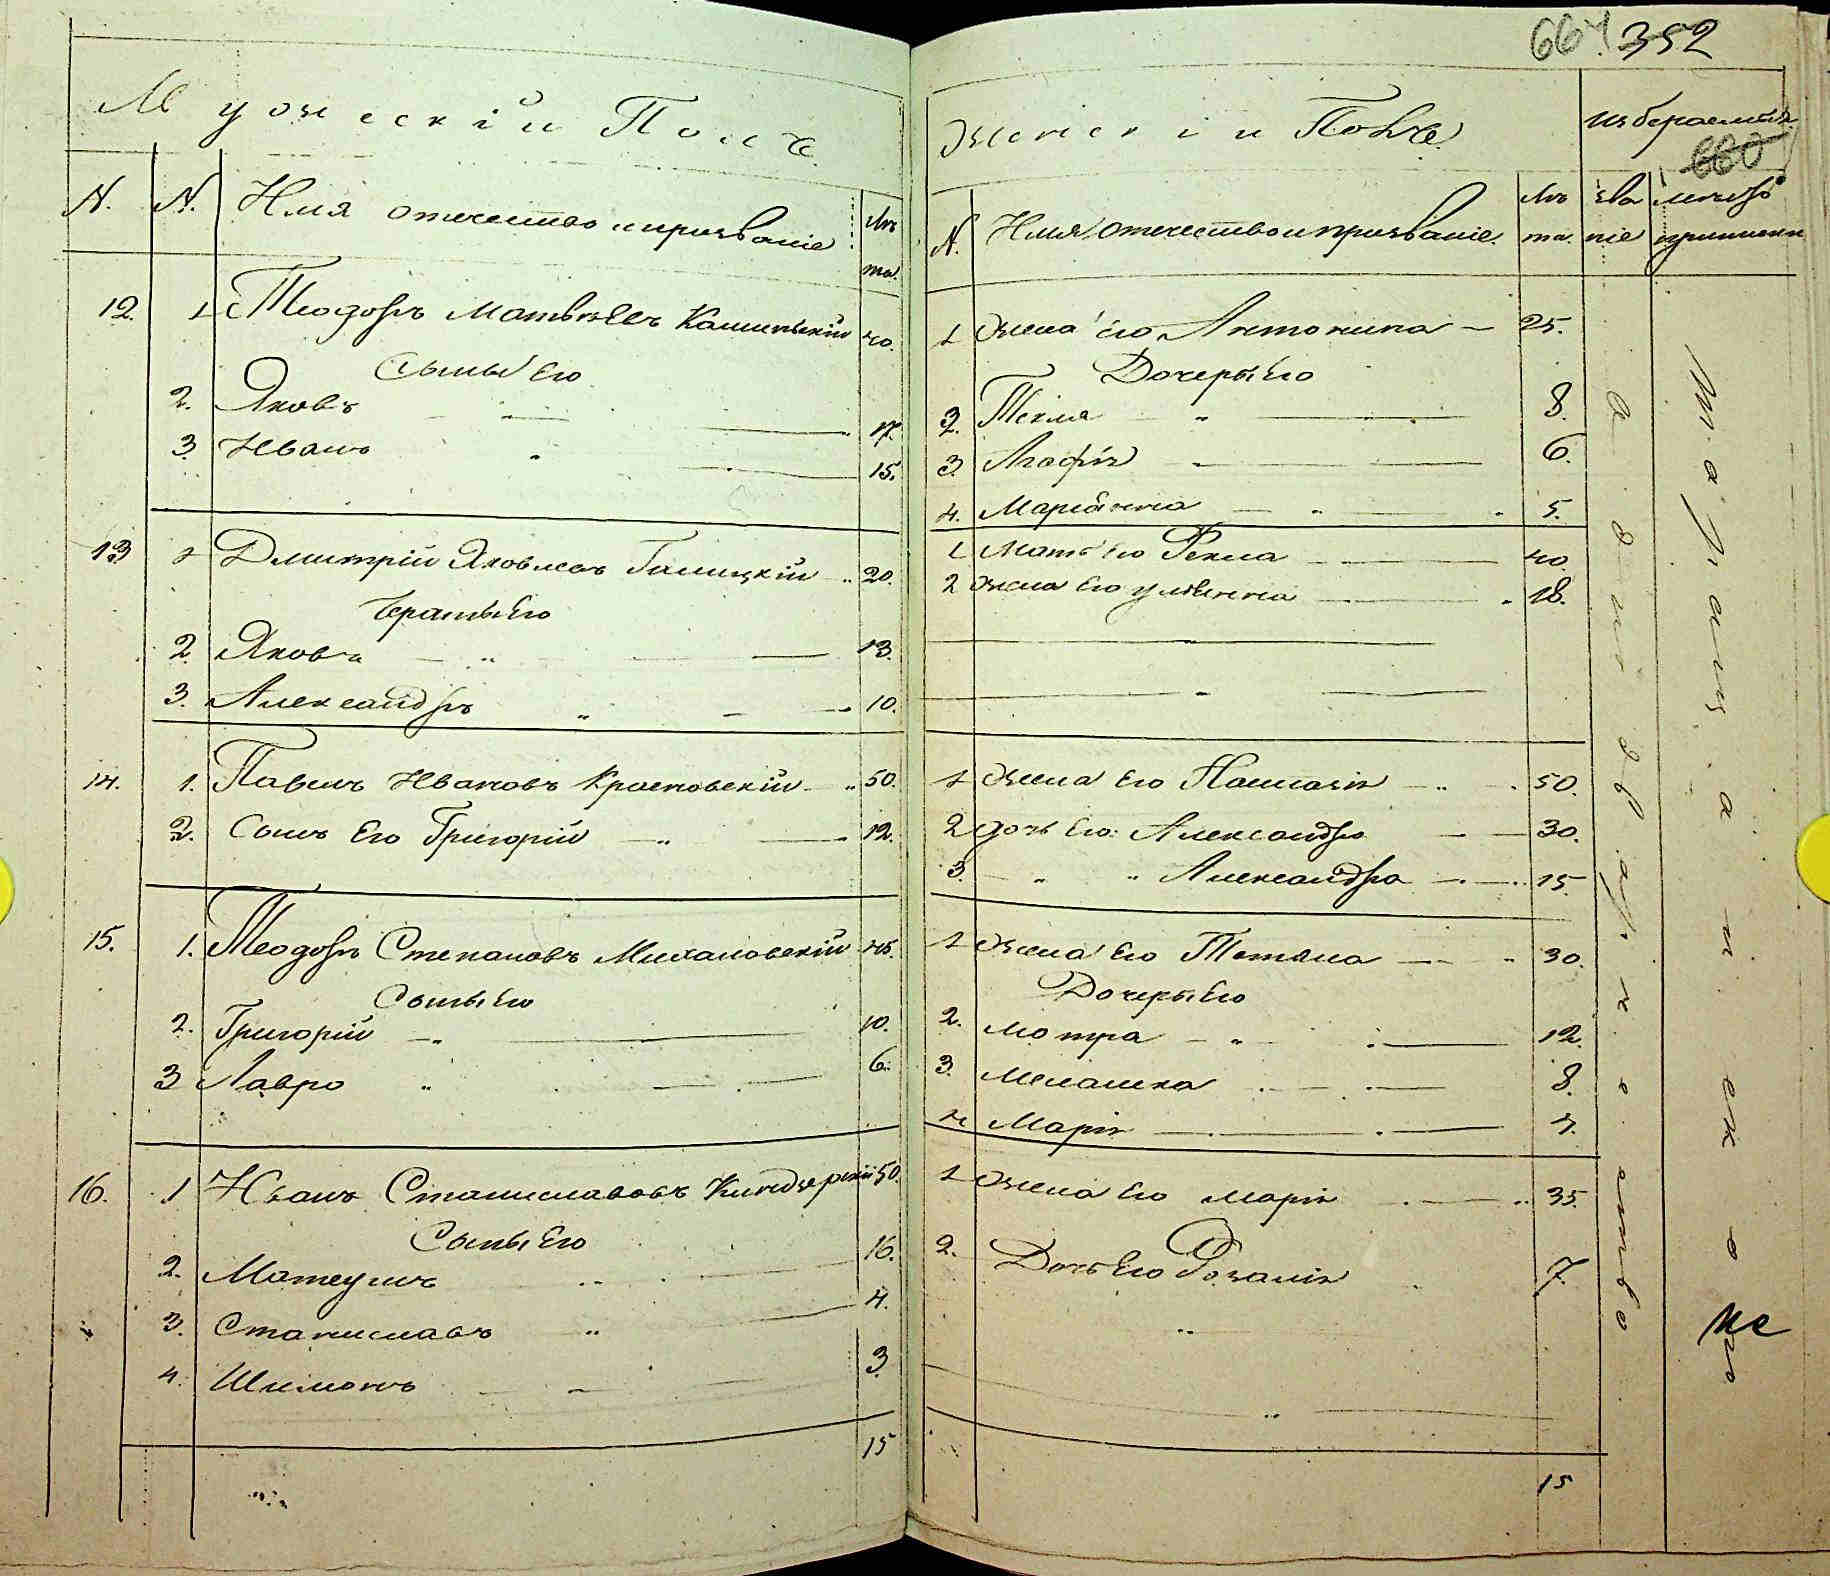 664 352
Мужескій Полъ
N. N. Имя отчество и прозваніе Лѣта.
12. 1 Теодоръ Матвѣевъ Калинскій 40.
Сыны Его
2. Яковъ 17.
3. Иванъ 15.
13 1 Дмитрій Яковлевъ Галицкій 20.
Братьи Его
2. Яковъ 13.
3. Александръ 10.
14. 1. Павелъ Ивановъ Красновскій 50.
2. Сынъ Его Григорій 12.
15. 1. Теодоръ Степановъ Михаловскій 45.
Сыны Его
2. Григорій 10.
3 Лавро 6.
16. 1 Иванъ Станиславовъ 50.
Сыны Его
2. Матеушъ 16.
3. Станиславъ 4.
4. Шимонъ 3
15
Женскій Полъ избираемыя
660
N. Имя отчество и прозваніе. Лѣта. званіе мѣсто
1 Жена его Антонина 25.
Дочеры Его
2. Текля 8.
3. Агафія 6.
4. Маріанна 5.
1 Мать Его Фекла 40.
2 Жена Его Улянна 18.
1 Жена Его 50.
2 дочь Его Александра 30.
3. " " Александра 15.
1 Жена Его Татяна 30.
Дочеры Его
2. Мотра 12.
3. Мелашка 8.
4 Марія 4.
1 Жена Его Марія 35.
2. Дочь Его Розалія 7.
15
однодворчество
не